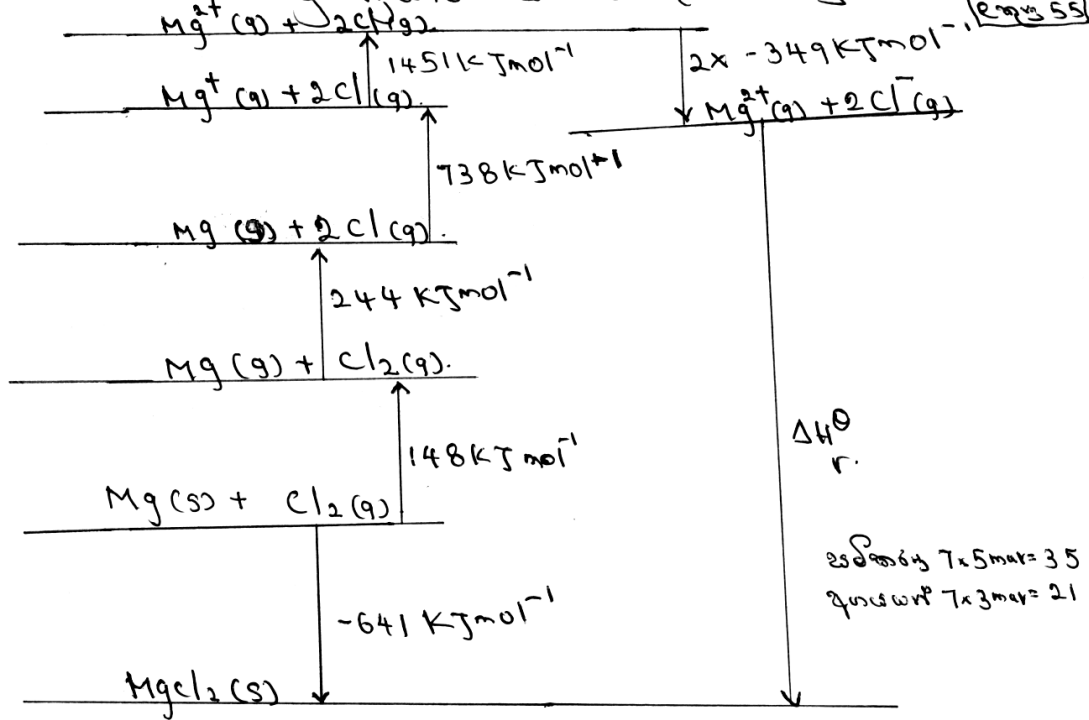 Mg²⁺(g) + 2Cl(g)
1451 KJmol⁻¹
2x -349KJmol⁻¹
Mg⁺(g) + 2Cl(g).
Mg²⁺(g) + 2Cl⁻(g)
738KJmol⁺¹
Mg (g) + 2Cl(g).
244 KJmol⁻¹
Mg(g) + Cl₂(g).
148KJmol⁻¹
ΔH^θ
r.
Mg(s) + Cl₂(g)
7x5mar=35
7x3mar=21
-641 KJmol⁻¹
MgCl₂(s)